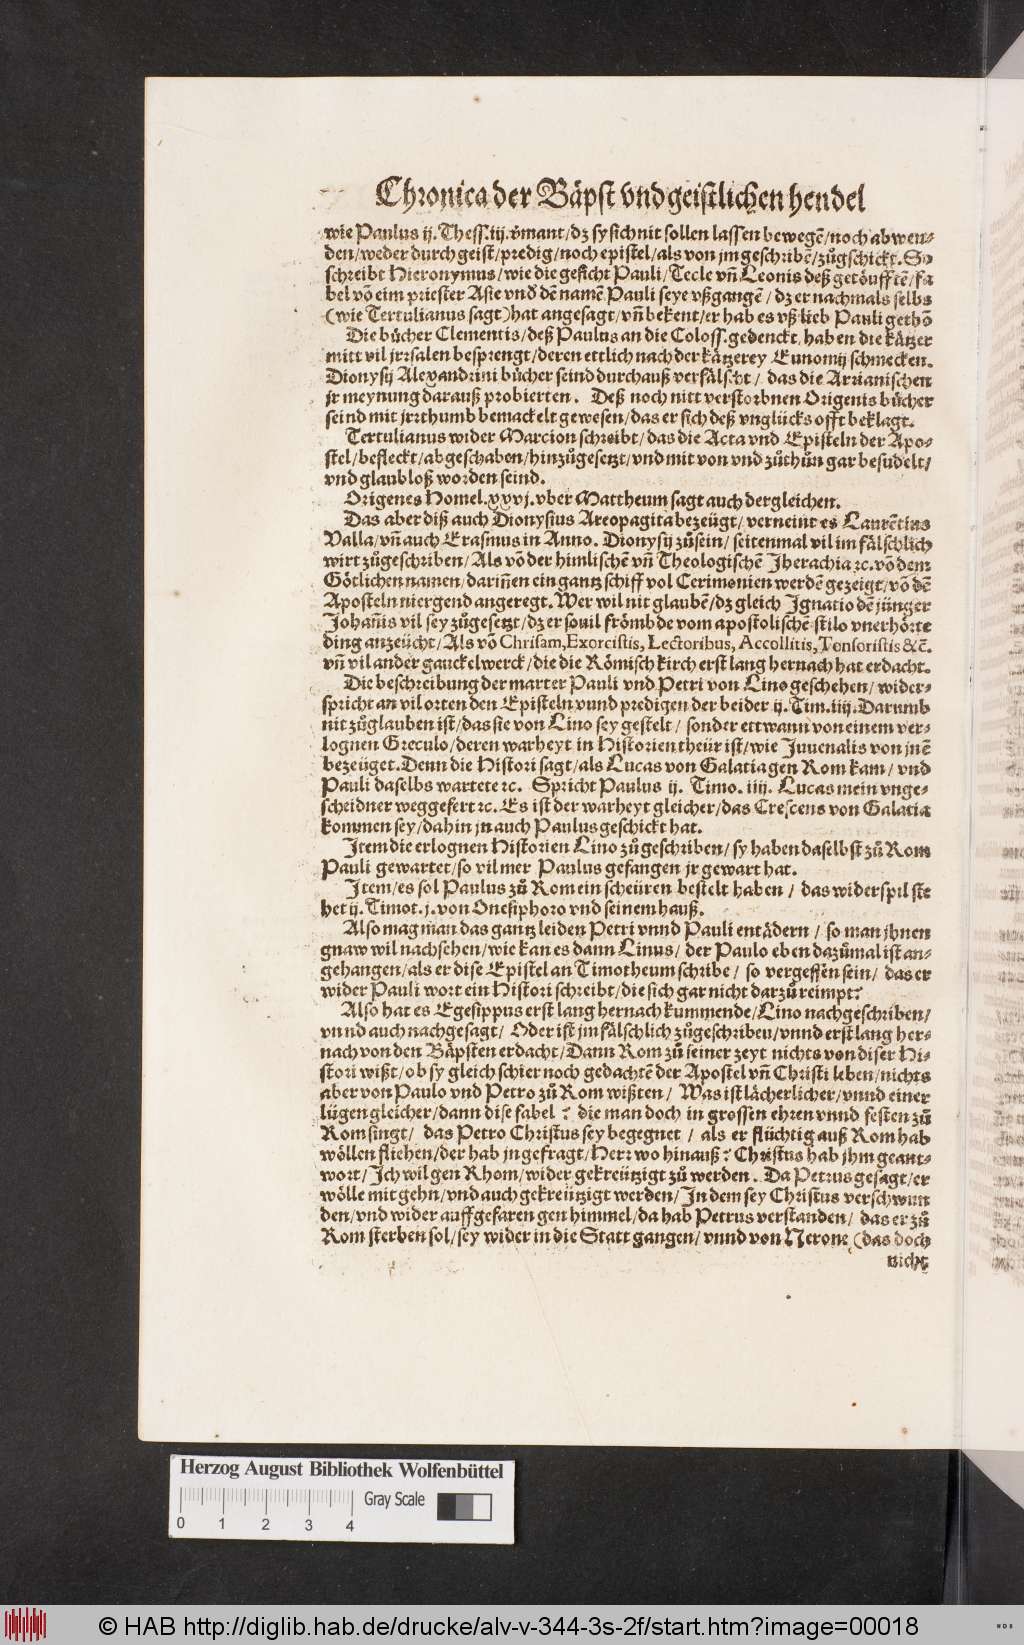 Chronica der Bäpst vnd geistlichen hendel
wie Paulus ij. Thess. iij. v̈mant/dz sy sich nit sollen lassen bewegē/noch abwen⸗
den/weder durch geist/predig/noch epistel/als von jm geschribē/zůgschickt. So
schreibt Hieronymus/wie die gesicht Pauli/Tecle vn̄ Leonis deß getöufftē/fa
bel võ eim priester Asie vnd̕ dē namē Pauli seye vßgangē/dz er nachmals selbs
(wie Tertulianus sagt) hat angesagt/vn̄ bekent/er hab es vß lieb Pauli gethō
Die bücher Clementis/deß Paulus an die Coloss. gedenckt, haben die kätzer
mitt vil jrrsalen besprengt/deren ettlich nach der kätzerey Eunomij schmecken.
Dionysij Alexandrini bücher seind durchauß verfälscht/ das die Arrianischen
jr meynung darauß probierten. Deß noch nitt verstorbnen Origenis bücher
seind mit jrrthumb bemackelt gewesen/das er sich deß vnglücks offt beklagt.
Tertulianus wider Marcion schreibt/das die Acta vnd Episteln der Apo⸗
stel/befleckt/abgeschaben/hinzůgesetzt/vnd mit von vnd zůthůn gar besudelt/
vnd glaubloß worden seind.
Origenes Homel. xxvj. vber Mattheum sagt auch dergleichen.
Das aber diß auch Dionysius Areopagita bezeügt/ verneint es Laurētius
Valla/vn̄ auch Erasmus in Anno. Dionysij zůsein/ seitenmal vil im fälschlich
wirt zůgeschriben/Als võ der himlischē vn̄ Theologischē Jherachia ꝛc. võ dem
Götlichen namen/darin̄en ein gantz schiff vol Cerimonien werdē gezeigt/võ dē
Aposteln niergend angeregt. Wer wil nit glaubē/dz gleich Ignatio dē jünger
Johan̄is vil sey zůgesetzt/dz er souil frömbde vom apostolischē stilo vnerhörte
ding anzeücht/Als võ Chrisam, Exorcistis, Lectoribus, Accollitis, Tonsoristis &c̄.
vn̄ vil ander gauckelwerck/die die Römisch kirch erst lang hernach hat erdacht.
Die beschreibung der marter Pauli vnd Petri von Lino geschehen/ wider⸗
spricht an vil orten den Episteln vnnd predigen der beider ij. Tim. iiij. Darumb
nit zůglauben ist/das sie von Lino sey gestelt/ sonder ettwann von einem ver⸗
lognen Greculo/deren warheyt in Historien theür ist/wie Juuenalis von jnē
bezeüget. Denn die Histori sagt/als Lucas von Galatia gen Rom kam/ vnd
Pauli daselbs wartete ꝛc. Spricht Paulus ij. Timo. iiij. Lucas mein vnge⸗
scheidner weggefert ꝛc. Es ist der warheyt gleicher/das Crescens von Galatia
kommen sey/dahin jn auch Paulus geschickt hat.
Item die erlognen Historien Lino zůgeschriben/sy haben daselbst zů Rom
Pauli gewartet/so vil mer Paulus gefangen jr gewart hat.
Item/es sol Paulus zů Rom ein scheüren bestelt haben/ das widerspil ste
het ij. Timot. j. von Onesiphoro vnd seinem hauß.
Also mag man das gantz leiden Petri vnnd Pauli entädern/ so man jhnen
gnaw wil nachsehen/wie kan es dann Linus/ der Paulo eben dazůmal ist an⸗
gehangen/als er dise Epistel an Timotheum schribe/ so vergessen sein/ das er
wider Pauli wort ein Histori schreibt/die sich gar nicht darzů reimpt?
Also hat es Egesippus erst lang hernach kummende/Lino nachgeschriben/
vnnd auch nachgesagt/ Oder ist jm fälschlich zůgeschriben/vnnd erst lang her⸗
nach von den Bäpsten erdacht/Dann Rom zů seiner zeyt nichts von diser Hi⸗
stori wißt/ob sy gleich schier noch gedachtē der Apostel vn̄ Christi leben/nichts
aber von Paulo vnd Petro zů Rom wißten/ Was ist lächerlicher/vnnd einer
lügen gleicher/dann dise fabel? die man doch in grossen ehren vnnd festen zů
Rom singt/ das Petro Christus sey begegnet/ als er flüchtig auß Rom hab
wöllen fliehen/der hab jn gefragt/Herr wo hinauß? Christus hab jhm geant⸗
wort/Ich wil gen Rhom/wider gekreützigt zů werden. Da Petrus gesagt/er
wölle mit gehn/vnd auch gekreützigt werden/In dem sey Christus verschwun
den/vnd wider auffgefaren gen himmel/da hab Petrus verstanden/ das er zů
Rom sterben sol/sey wider in die Statt gangen/vnnd von Nerone (das doch
nicht
Herzog August Bibliothek Wolfenbüttel
Gray Scale
0 1 2 3 4
© HAB http://diglib.hab.de/drucke/alv-v-344-3s-2f/start.htm?image=00018